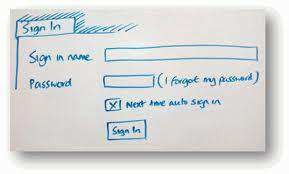 Sign In
Sign in name
Password (I forgot my password)
Next time auto sign in
Sign In